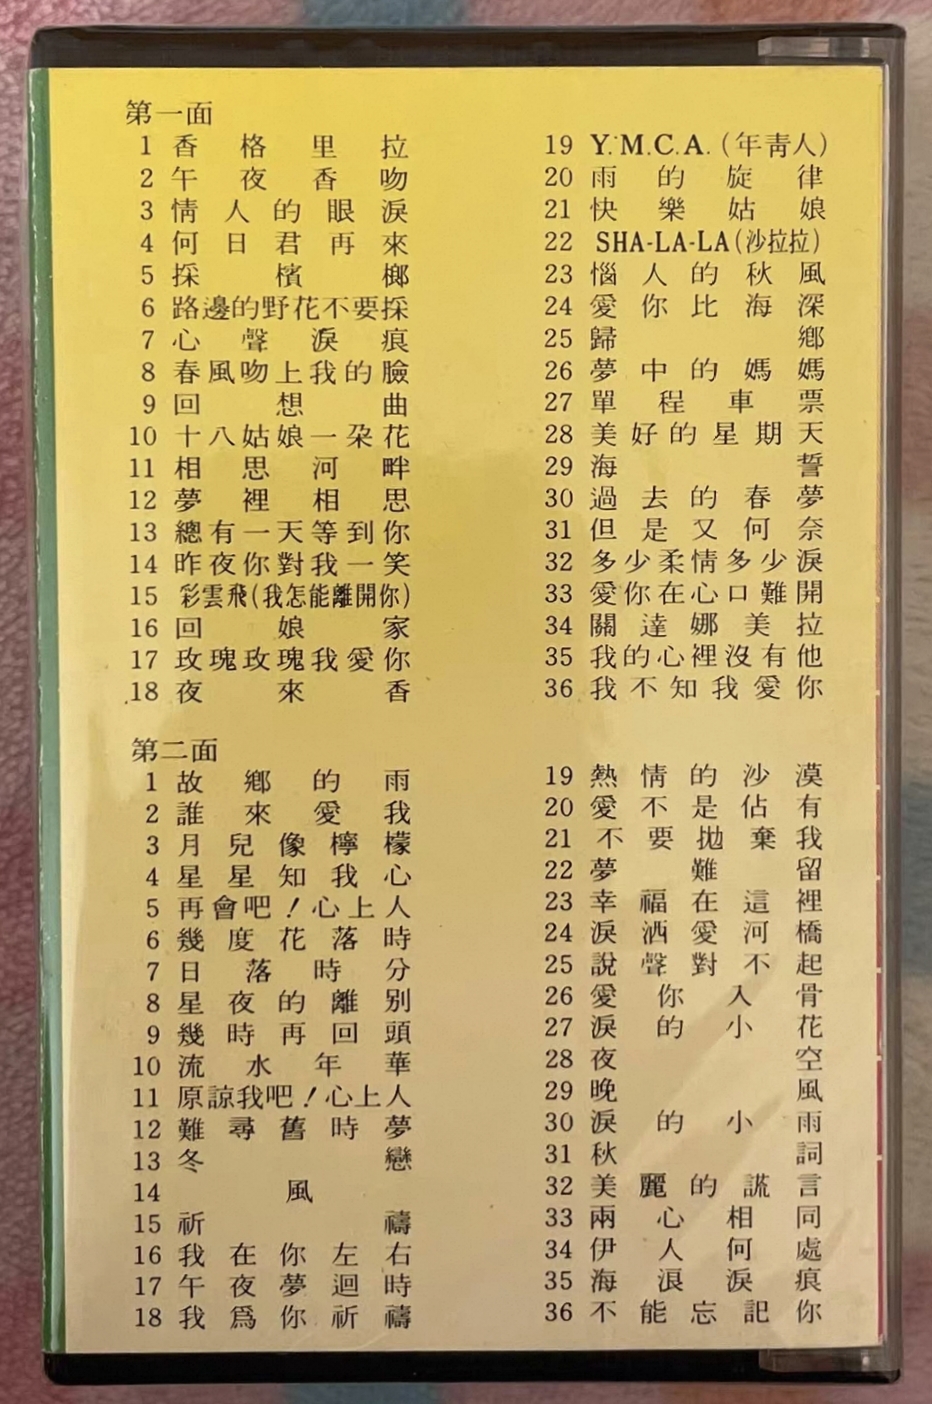 第一面
1 香格里拉
2 午夜香吻
3 情人的眼淚
4 何日君再來
5 採檳榔
6 路邊的野花不要採
7 心聲淚痕
8 春風吻上我的臉
9 回想曲
10 十八姑娘一朶花
11 相思河畔
12 夢裡相思
13 總有一天等到你
14 昨夜你對我一笑
15 彩雲飛(我怎能離開你)
16 回娘家
17 玫瑰玫瑰我愛你
18 夜來香
19 Y.M.C.A.(年靑人)
20 雨的旋律
21 快樂姑娘
22 SHA-LA-LA(沙拉拉)
23 惱人的秋風
24 愛你比海深
25 歸鄉
26 夢中的媽媽
27 單程車票
28 美好的星期天
29 海誓
30 過去的春夢
31 但是又何奈
32 多少柔情多少淚
33 愛你在心口難開
34 關達娜美拉
35 我的心裡沒有他
36 我不知我愛你
第二面
1 故鄉的雨
2 誰來愛我
3 月兒像檸檬
4 星星知我心
5 再會吧！心上人
6 幾度花落時
7 日落時分
8 星夜的離別
9 幾時再回頭
10 流水年華
11 原諒我吧！心上人
12 難尋舊時夢
13 冬戀
14 風
15 祈禱
16 我在你左右
17 午夜夢迴時
18 我爲你祈禱
19 熱情的沙漠
20 愛不是佔有
21 不要拋棄我
22 夢難留
23 幸福在這裡
24 淚洒愛河橋
25 說聲對不起
26 愛你入骨
27 淚的小花
28 夜空
29 晚風
30 淚的小雨
31 秋詞
32 美麗的謊言
33 兩心相同
34 伊人何處
35 海浪淚痕
36 不能忘記你